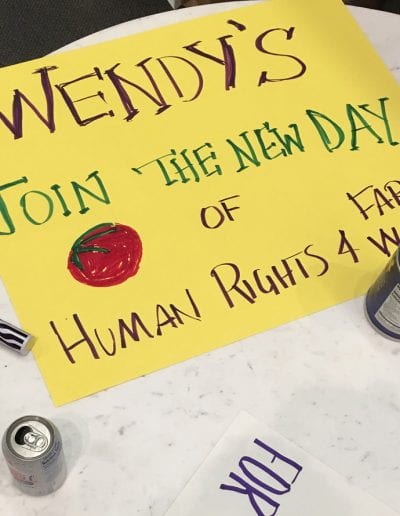 WENDY'S
JOIN THE NEW DAY
OF FAR
HUMAN RIGHTS 4 W
FOR